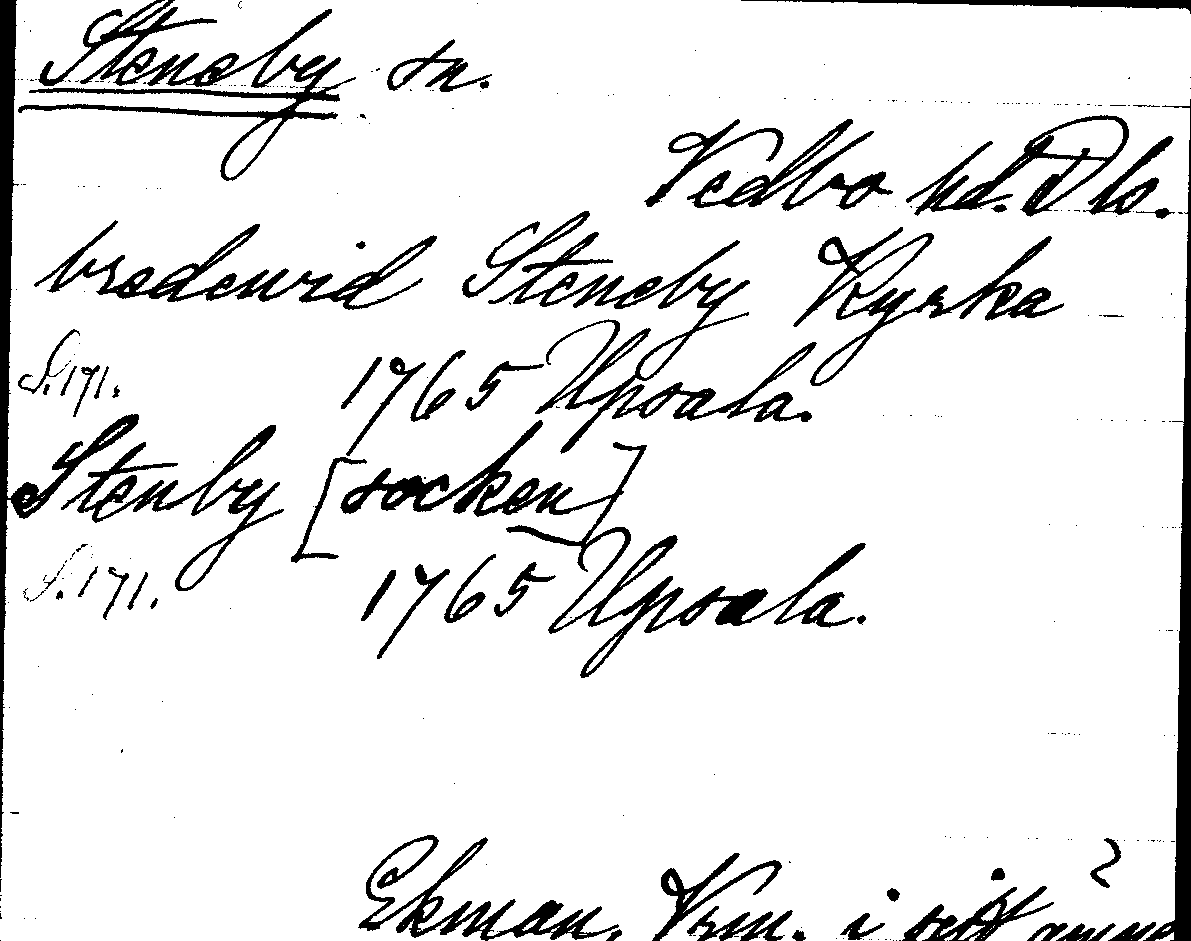 Steneby sn.
Vedbo hd. Dls.
bredewid Steneby Kyrka
S. 171. 1765 Upsala.
Stenby [socken]
S. 171. 1765 Upsala.
Ekman, Vrm. i sitt